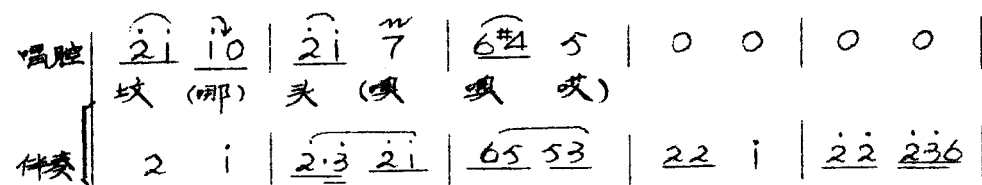 唱腔 2̇1̇ 1̇0 | 2̇1̇ 7 | 6#4 5 | 0 0 | 0 0 |
坟 (哪) 头 (噢 噢 哎)
伴奏 2 1̇ | 2·3̇ 2̇1̇ | 65 53 | 22 1̇ | 2̇2̇ 2̇3̇6 |